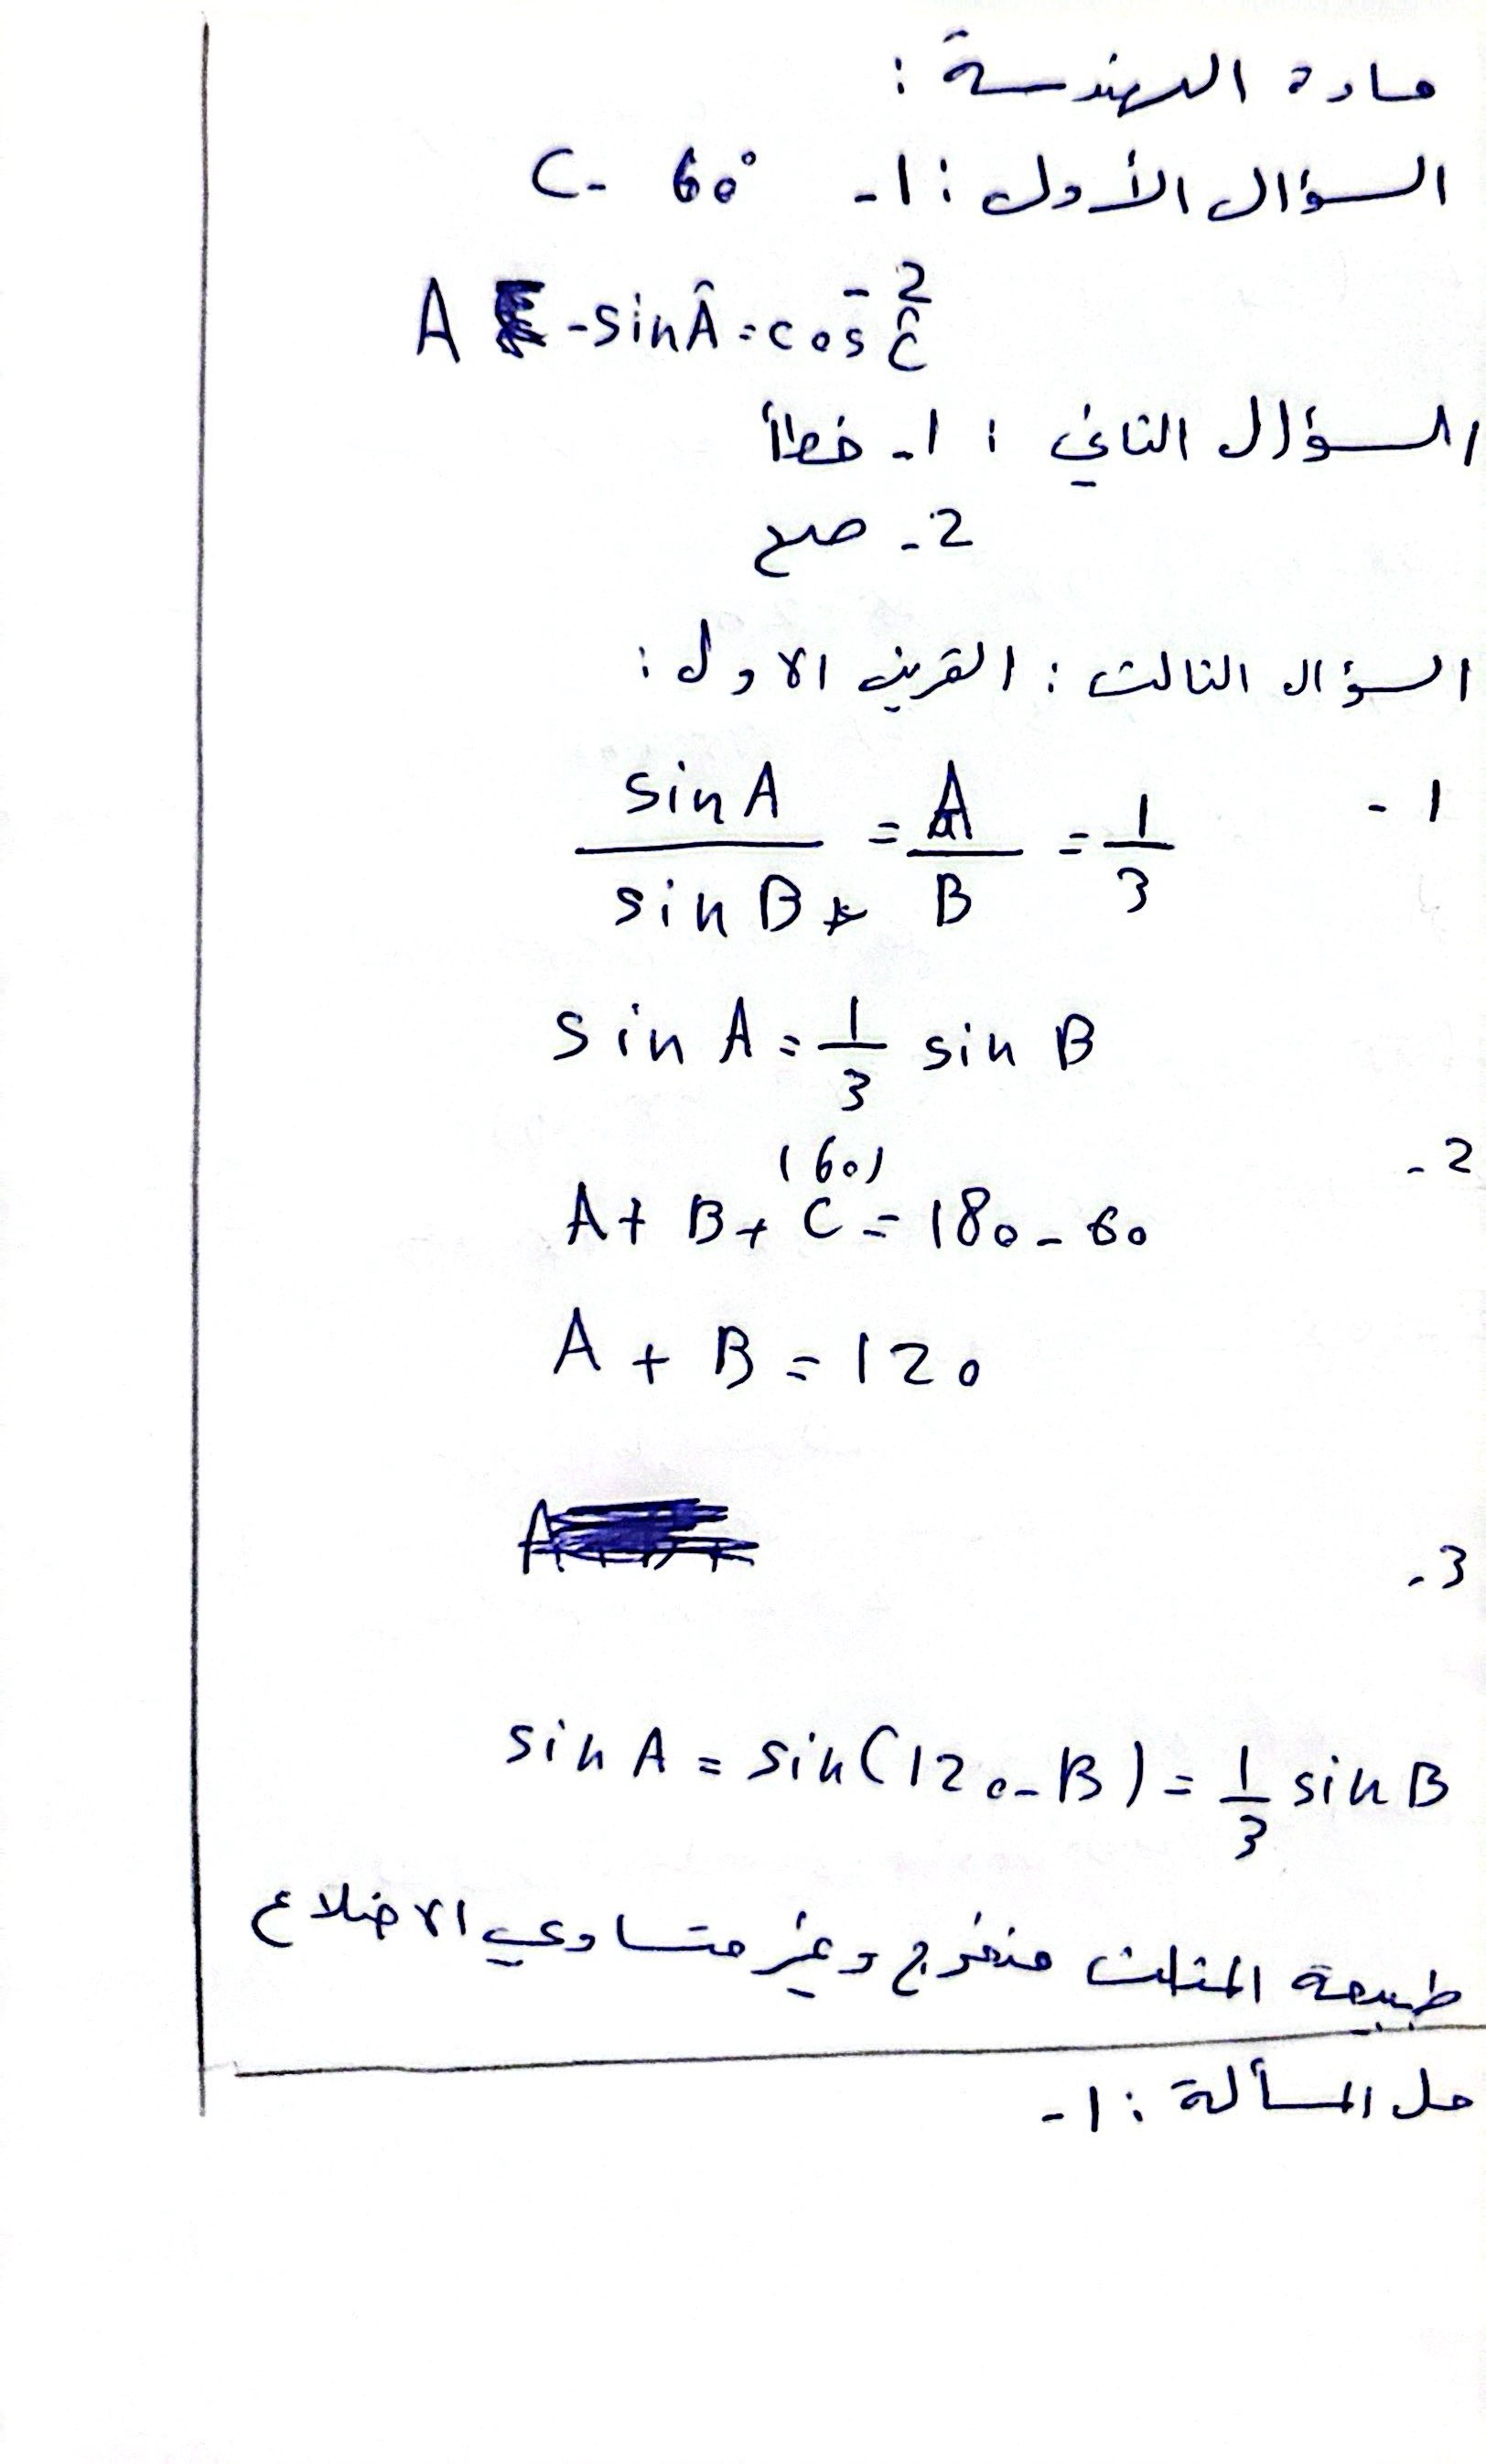 مادة الهندسة :
السؤال الأول : 1- C- 60°
2- A -sinÂ=cosĈ
السؤال الثاني : 1- خطأ
2- صح
السؤال الثالث : التمرين الاول :
1- sin A / sin B = A / B = 1/3
sin A = 1/3 sin B
2- A + B + C = 180 - 60
(60)
A + B = 120
3-
sin A = sin(120-B) = 1/3 sin B
طبيعة المثلث منفرج وغير متساوي الاضلاع
حل المسألة : 1-